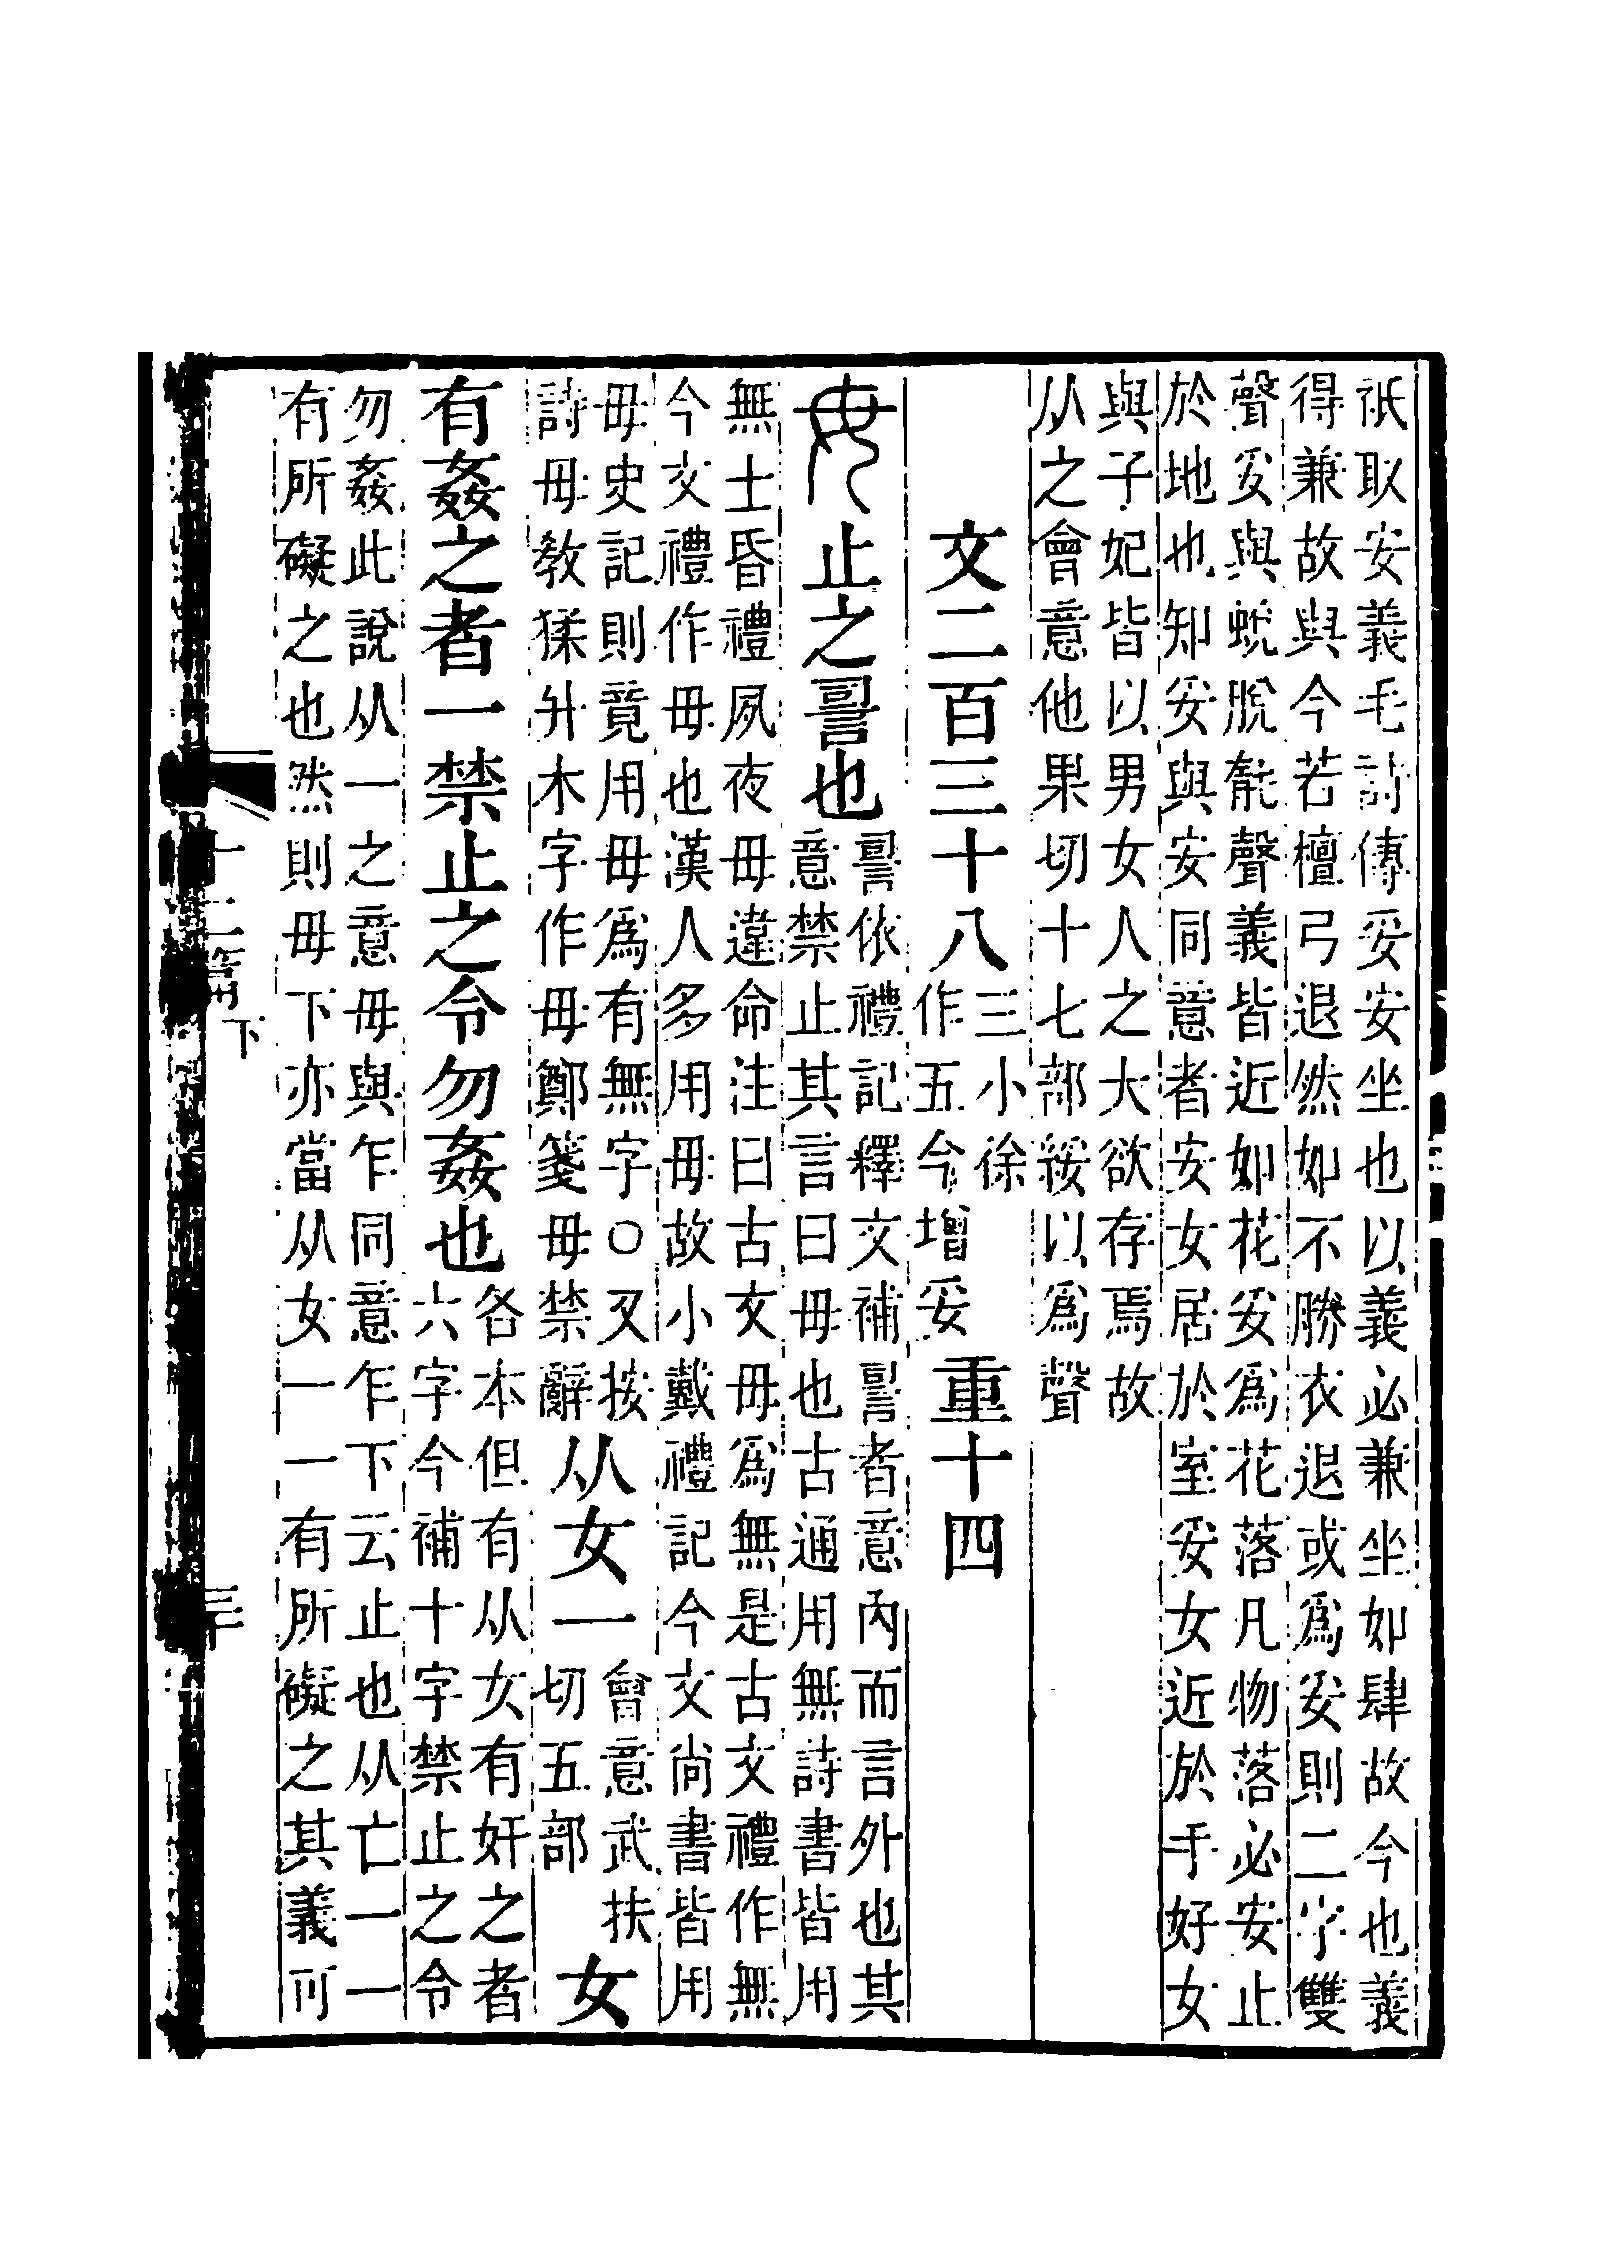 祇取安義毛詩傳妥安坐也以義必兼坐如肆故今也義
得兼故與今若檀弓退然如不勝衣退或爲妥則二字雙
聲妥與蛻脫毻聲義皆近如花妥爲花落凡物落必安止
於地也知妥與安同意者安女居於室妥女近於手好女
與子妃皆以男女人之大欲存焉故
从之會意他果切十七部綏以爲聲
文二百三十八三小徐作五今增妥重十四
毋止之䛐也䛐依禮記釋文補䛐者意內而言外也其
意禁止其言曰毋也古通用無詩書皆用
無士昏禮夙夜毋違命注曰古文毋爲無是古文禮作無
今文禮作毋也漢人多用毋故小戴禮記今文尚書皆用
毋史記則竟用毋爲有無字○又按
詩毋教猱升木字作毋鄭箋毋禁辭
从女一會意武扶切五部女
有姦之者一禁止之令勿姦也各本但有从女有奸之者
六字今補十字禁止之令
勿姦此說从一之意毋與乍同意乍下云止也从亡一一
有所礙之也然則毋下亦當从女一一有所礙之其義可
十二篇下
三十